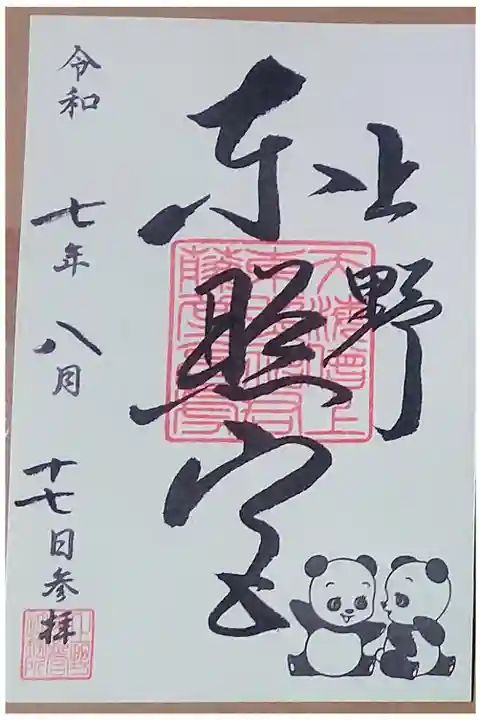 上野
東照宮
令和 七年 八月 十七日参拝